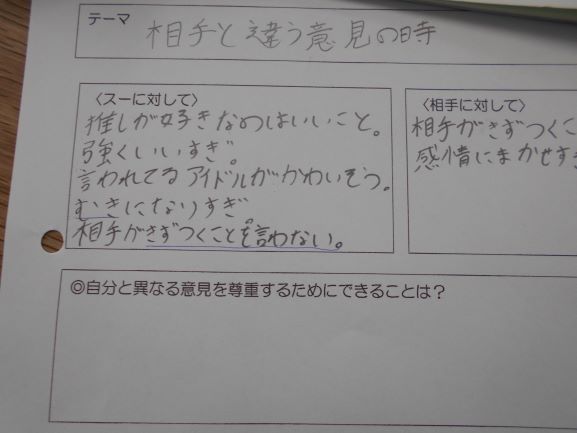 テーマ
相手と違う意見の時
〈スーに対して〉
推しが好きなのはいいこと。
強くいいすぎ。
言われてるアイドルがかわいそう。
むきになりすぎ。
相手がきずつくことを言わない。
〈相手に対して〉
相手がきずつくこ
感情にまかせすぎ
◎自分と異なる意見を尊重するためにできることは?